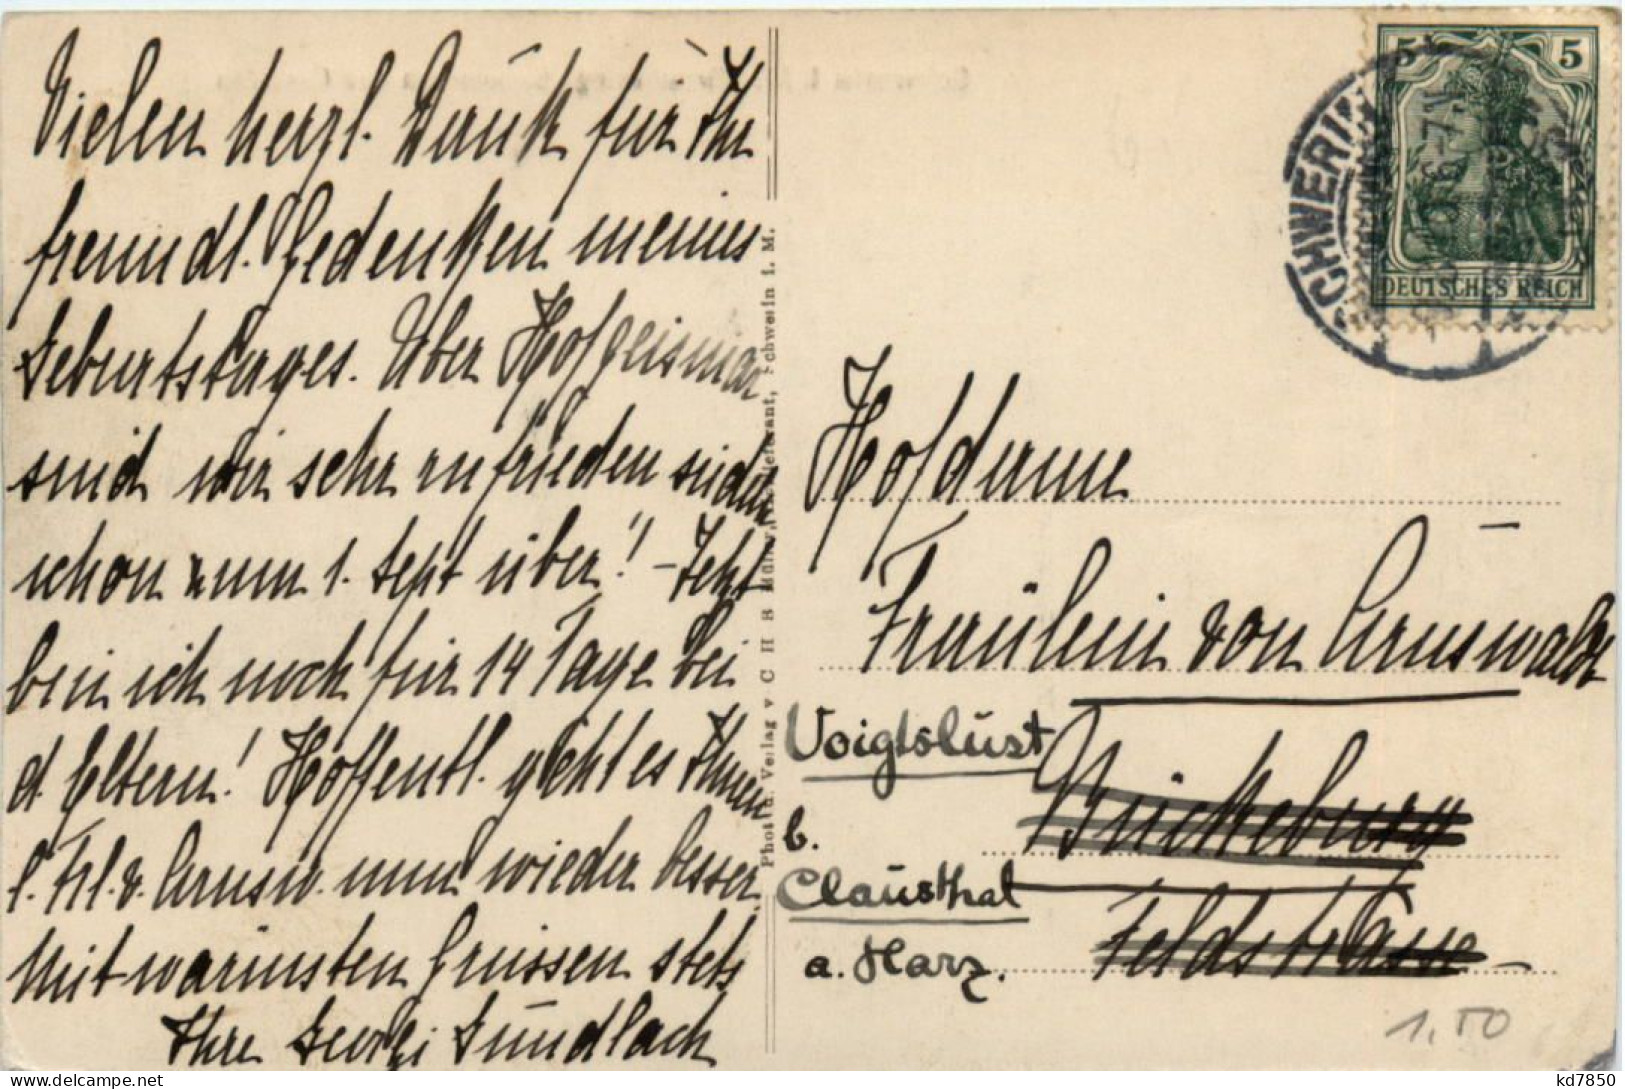 Vielen herzl. Dank für Ihr
freundl. Gedenken meines
Geburtstages. Über Hofgeismar
sind wir sehr zufrieden
schon zum 1. Sept über! – Jetzt
bin ich noch für 14 Tage bei
d. Eltern! Hoffentl. geht es Ihnen
l. Frl. v. Arnsw. nun wieder besser
Mit warmsten Grüssen stets
Ihre Gundlach
Verlag v C H S
Schwerin i. M.
SCHWERIN
5 5
DEUTSCHES REICH
Hofdame
Fräulein von Arnswaldt
Voigtslust
Bückeburg
b.
Clausthal
Feldstrasse
a. Harz.
1.50
kd7850